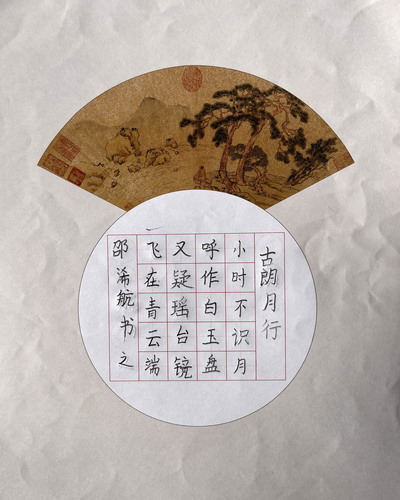 古朗月行
小时不识月
呼作白玉盘
又疑瑶台镜
飞在青云端
邵浠航书之